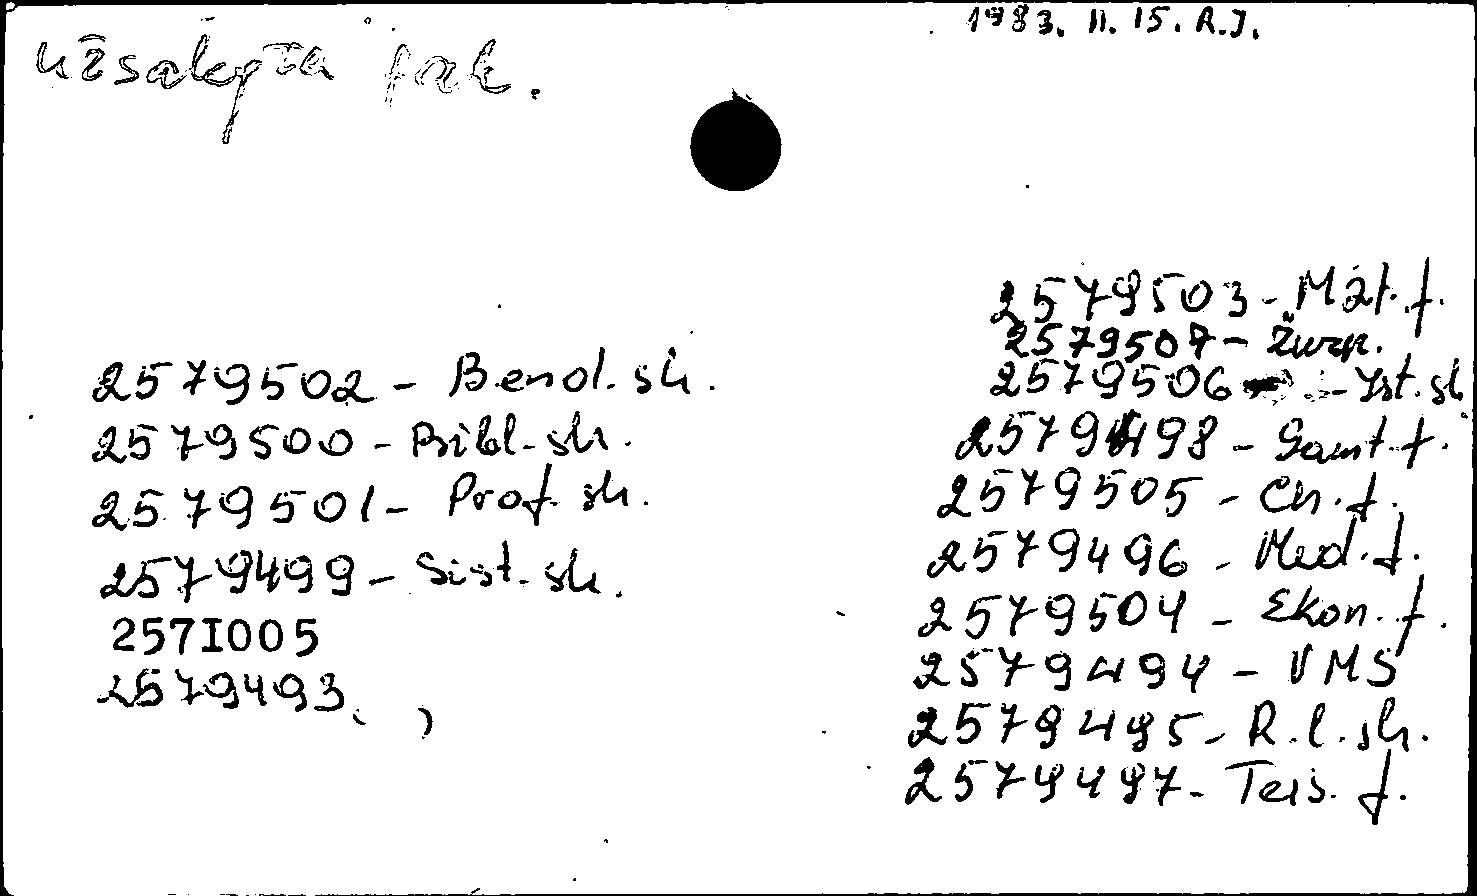 1983. II. 15. R.J.
užsakyta fak.
2579502 - Bend. sk.
2579500 - Bibl. sk.
2579501 - Prof. sk.
2579499 - Sist. sk.
257I005
2579493
2579503 - Mat. f.
2579507 - Žurn.
2579506 - Ist. sk
2579498 - Gamt. f.
2579505 - Ch. f.
2579496 - Med. f.
2579504 - Ekon. f.
2579494 - VMS
2579495 - R.l. sk.
2579497 - Teis. f.